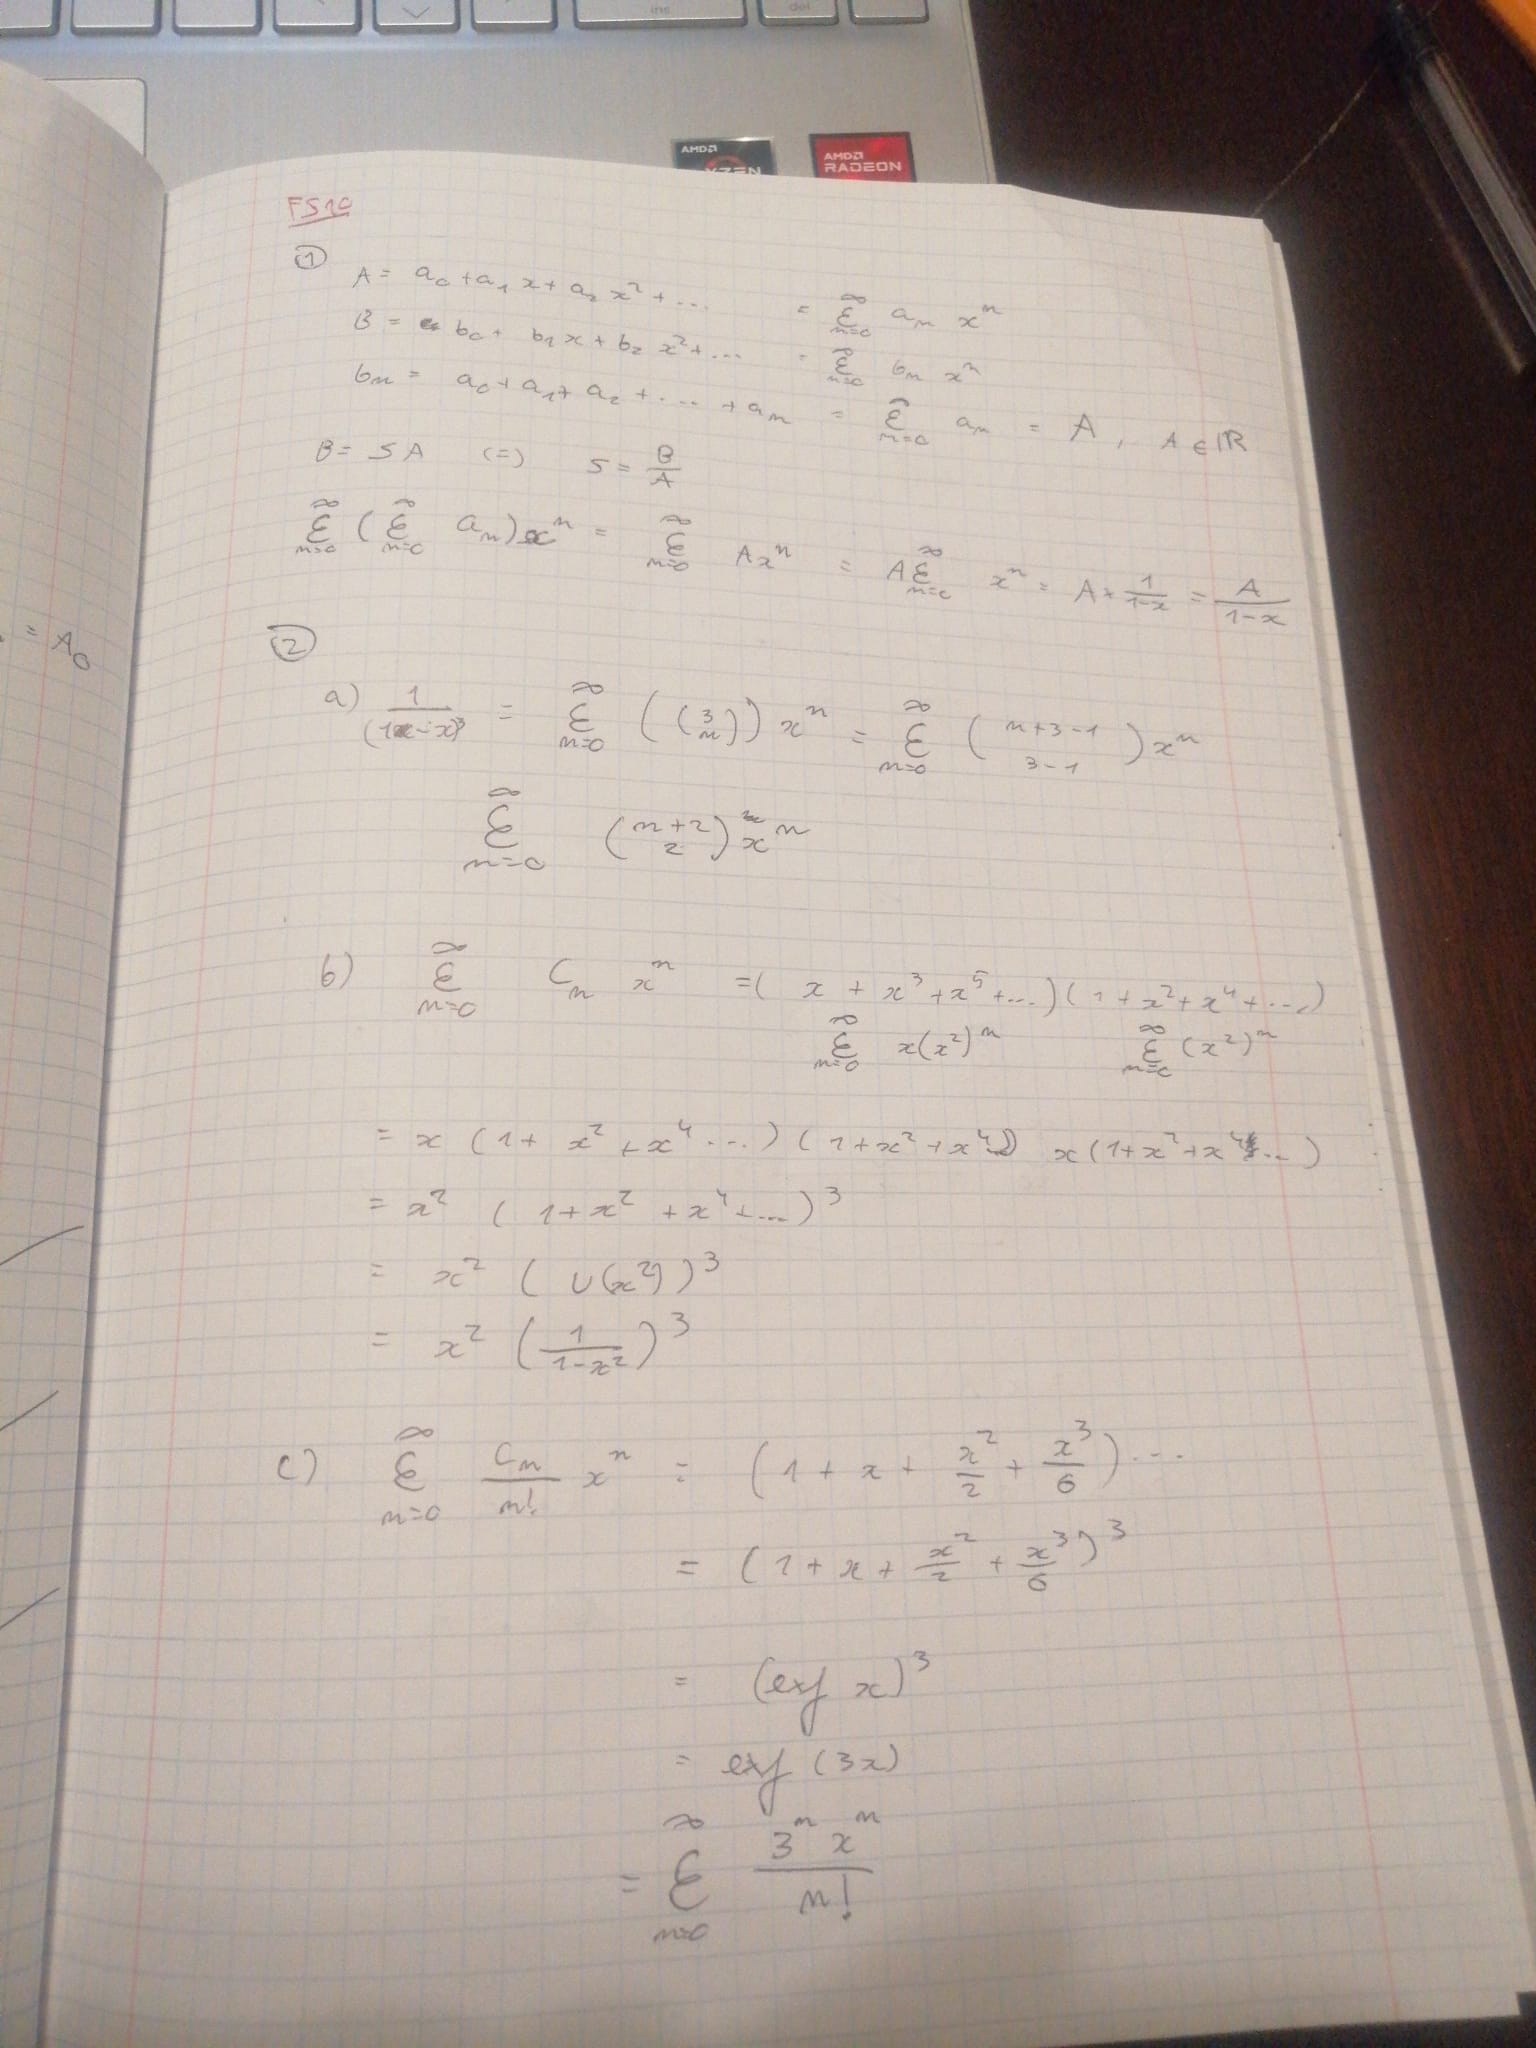 ins
del
AMD
RYZEN
AMD
RADEON
FS10
= A₀
① A = a₀ + a₁ x + a₂ x² + ... = Σ_{n=0}^∞ aₙ xⁿ
B = b₀ + b₁ x + b₂ x² + ... = Σ_{n=0}^∞ bₙ xⁿ
bₙ = a₀ + a₁ + a₂ + ... + aₙ = Σ_{n=0}^∞ aₙ = A, A ∈ ℝ
B = SA (=) S = B/A
Σ_{n=0}^∞ (Σ_{n=0}^∞ aₙ) xⁿ = Σ_{n=0}^∞ Axⁿ = A Σ_{n=0}^∞ xⁿ = A * 1/(1-x) = A/(1-x)
②
a) 1/(1-x)³ = Σ_{n=0}^∞ ((3 n)) xⁿ = Σ_{n=0}^∞ (n+3-1 3-1) xⁿ
Σ_{n=0}^∞ (n+2 2) xⁿ
b) Σ_{n=0}^∞ Cₙ xⁿ = (x + x³ + x⁵ + ...)(1 + x² + x⁴ + ...)
Σ_{n=0}^∞ x(x²)ⁿ Σ_{n=0}^∞ (x²)ⁿ
= x (1 + x² + x⁴ ...) (1 + x² + x⁴ ...) x(1 + x² + x⁴ ...)
= x² (1 + x² + x⁴ + ...)³
= x² (U(x²))³
= x² (1/(1-x²))³
c) Σ_{n=0}^∞ Cₙ/n! xⁿ = (1 + x + x²/2 + x³/6) ...
= (1 + x + x²/2 + x³/6)³
= (exp x)³
= exp (3x)
= Σ_{n=0}^∞ 3ⁿ xⁿ/n!